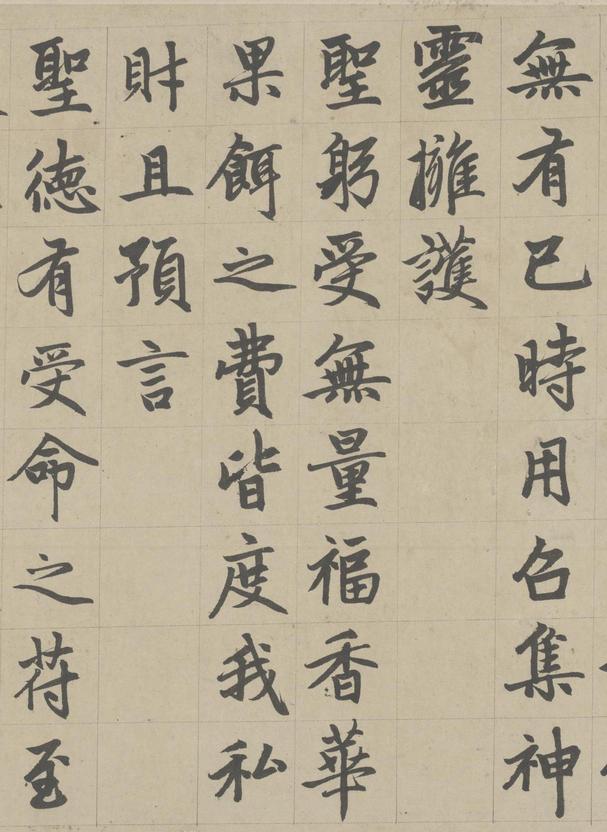 無有已時用召集神
靈擁護
聖躬受無量福香華
果餌之費皆度我私
財且預言
聖德有受命之符至